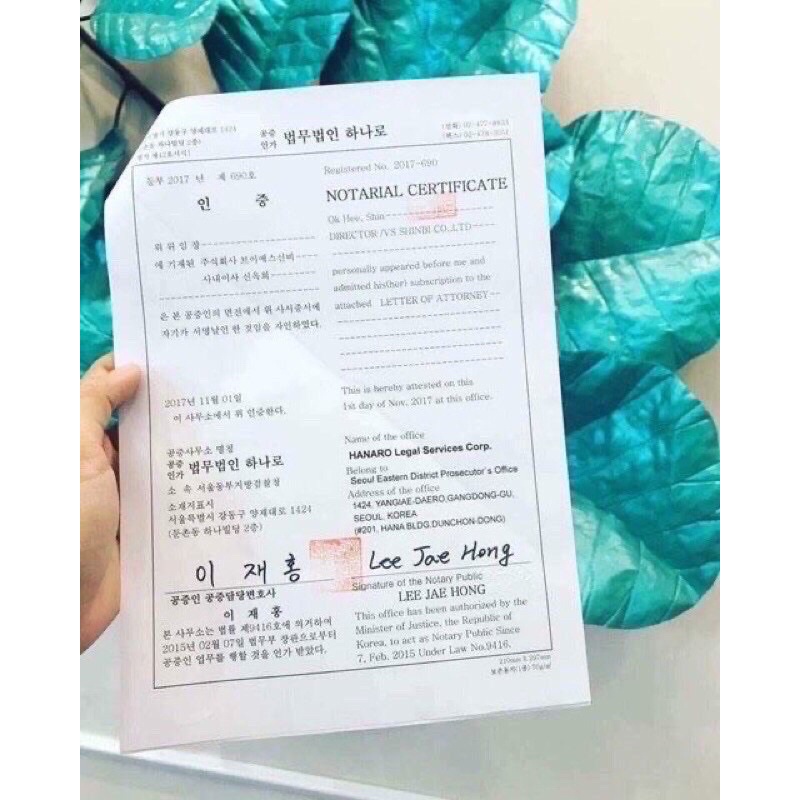 강동구 양재대로 1424
하나빌딩 2층)
공증
인가 법무법인 하나로
(전화) 02-477-8833
등부 2017 년 제 690호
Registered No. 2017-690
인 증
NOTARIAL CERTIFICATE
Ok Hee, Shin
DIRECTOR /VS SHINBI CO.,LTD
위 위임장
에 기재된 주식회사 브이에스신비
사내이사 신옥희
personally appeared before me and
admitted his(her) subscription to the
attached LETTER OF ATTORNEY
은 본 공증인의 면전에서 위 사서증서에
자기가 서명날인 한 것임을 자인하였다.
2017년 11월 01일
이 사무소에서 위 인증한다.
This is hereby attested on this
1st day of Nov, 2017 at this office.
공증사무소 명칭
공증
인가 법무법인 하나로
소 속 서울동부지방검찰청
소재지표시
서울특별시 강동구 양재대로 1424
(둔촌동 하나빌딩 2층)
Name of the office
HANARO Legal Services Corp.
Belong to
Seoul Eastern District Prosecutor's Office
Address of the office
1424, YANGJAE-DAERO,GANGDONG-GU,
SEOUL, KOREA
(#201, HANA BLDG.DUNCHON-DONG)
이 재 홍
Lee Jae Hong
공증인 공증담당변호사
이 재 홍
Signature of the Notary Public
LEE JAE HONG
본 사무소는 법률 제9416호에 의거하여
2015년 02월 07일 법무부 장관으로부터
공증인 업무를 행할 것을 인가 받았다.
This office has been authorized by the
Minister of Justice, the Republic of
Korea, to act as Notary Public Since
7, Feb. 2015 Under Law No.9416.
210mm X 297mm
보존용지(1종) 70g/㎡